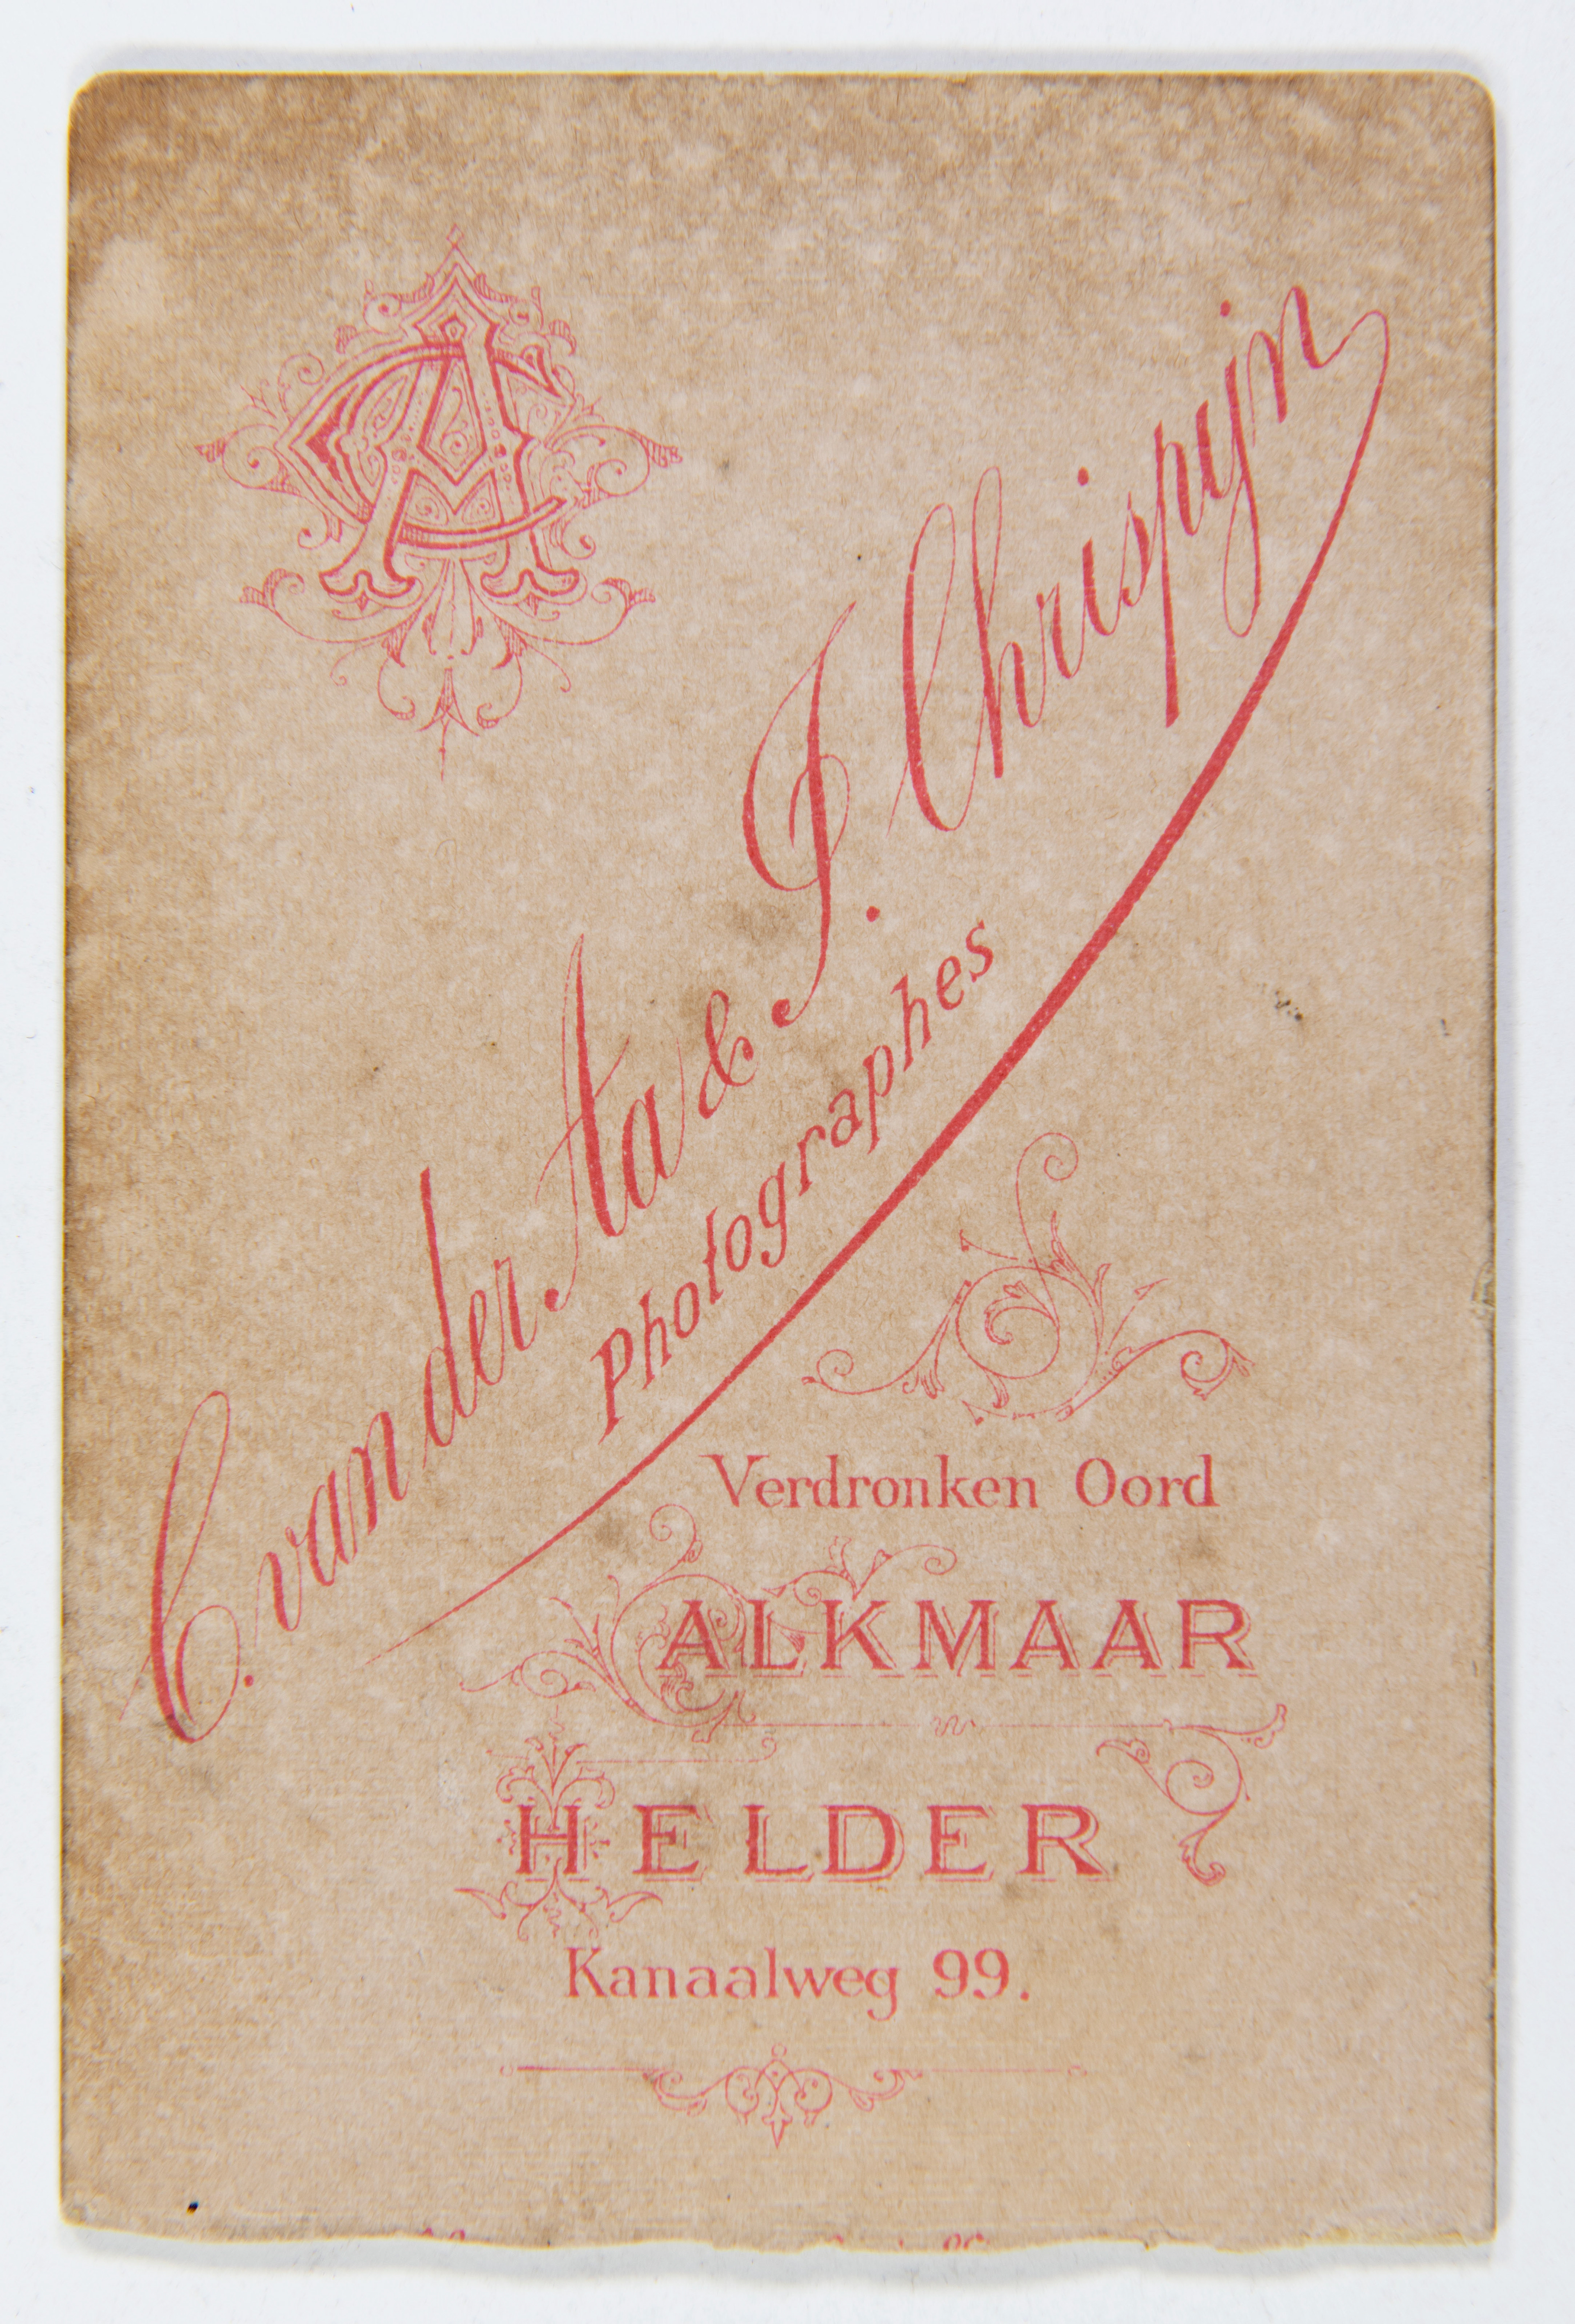 CA
C. van der Aa & J. Chrispijn
Photographes
Verdronken Oord
ALKMAAR
HELDER
Kanaalweg 99.